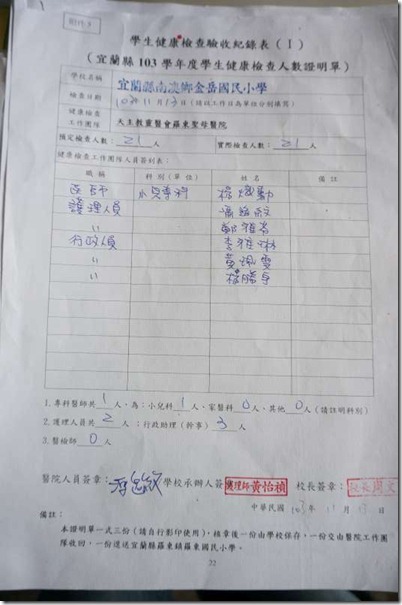 附件9
學生健康檢查驗收紀錄表（I）
（宜蘭縣 103 學年度學生健康檢查人數證明單）
學校名稱 宜蘭縣南澳鄉金岳國民小學
檢查日期 103年11月13日（請以工作日為單位分別填寫）
健康檢查工作團隊 天主教靈醫會羅東聖母醫院
預定檢查人數：21人 實際檢查人數：21人
健康檢查工作團隊人員簽到表：
職稱 科別（單位） 姓名 備註
醫師 小兒專科
護理人員
〃
行政人員
〃
〃
1.專科醫師共1人，為：小兒科1人、家醫科0人、其他0人（請註明科別）
2.護理人員共2人；行政助理（幹事）3人
3.醫檢師0人
醫院人員簽章： 學校承辦人簽 護理師黃怡禎 校長簽章： 校長周文
中華民國 103年 11月 13日
備註：
本證明單一式三份（請自行影印使用），核章後一份由學校保存，一份交由醫院工作團
隊收回，一份逕送宜蘭縣羅東鎮羅東國民小學。
22